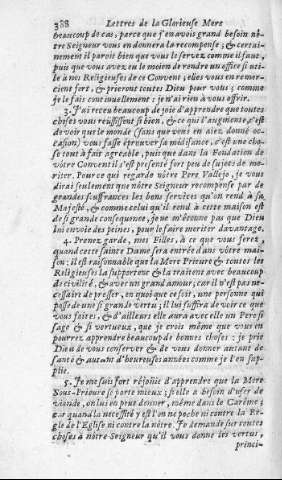 388 Lettres de la Glorieuse Mere
beaucoup de cas, parce que j'en avois grand besoin nô-
tre Seigneur vous en donnera la recompense; & certai-
nement il paroit bien que vous le servez comme il faut,
puis que vous avez eu le moien de rendre un office si uti-
le à nos Religieuses de ce Convent; elles vous en remer-
cient fort, & prieront toutes Dieu pour vous; comme
je le fais continuellement: je n'ai rien à vous offrir.
3. J'ai receu beaucoup de joie d'apprendre que toutes
choses vous reüssissent si bien, & ce qui l'augmente, c'est
de voir que le monde (sans que vous en aiez donné oc-
casion) vous fasse éprouver sa médisance, c'est une cho-
se tout à fait agreable, puis que dans la Fondation de
vôtre Convent il s'est presenté fort peu de sujets de me-
riter. Pour ce qui regarde nôtre Pere Vallejo, je vous
dirai seulement que nôtre Seigneur recompense par de
grandes souffrances les bons services qu'on rend à sa
Majesté, & comme celui qu'il rend à cette maison est
de si grande consequence, je ne m'étonne pas que Dieu
lui envoie des peines, pour le faire meriter davantage.
4. Prenez garde, mes Filles, à ce que vous ferez,
quand cette sainte Dame sera entrée dans vôtre mai-
son: il est raisonnable que la Mere Prieure & toutes les
Religieuses la supportent & la traitent avec beaucoup
de civilité, & avec un grand amour; car il n'est pas ne-
cessaire de presser, en quoi que ce soit, une personne qui
possede une si grande vertu; il lui suffira de voir ce que
vous faites, & d'ailleurs elle aura avec elle un Pere si
sage & si vertueux, que je crois même que vous en
pourrez apprendre beaucoup de bonnes choses: je prie
Dieu de vous conserver & de vous donner autant de
santé & autant d'heureuses années comme je l'en sup-
plie.
5. Je me suis fort réjoüie d'apprendre que la Mere
Sous-Prieure se porte mieux; si elle a besoin d'user de
viande, on lui en peut donner, même dans le Carême;
car quand la necessité y est l'on ne peche ni contre la Re-
gle de l'Eglise ni contre la nôtre. Je demande sur toutes
choses à nôtre Seigneur qu'il vous donne les vertus,
princi-